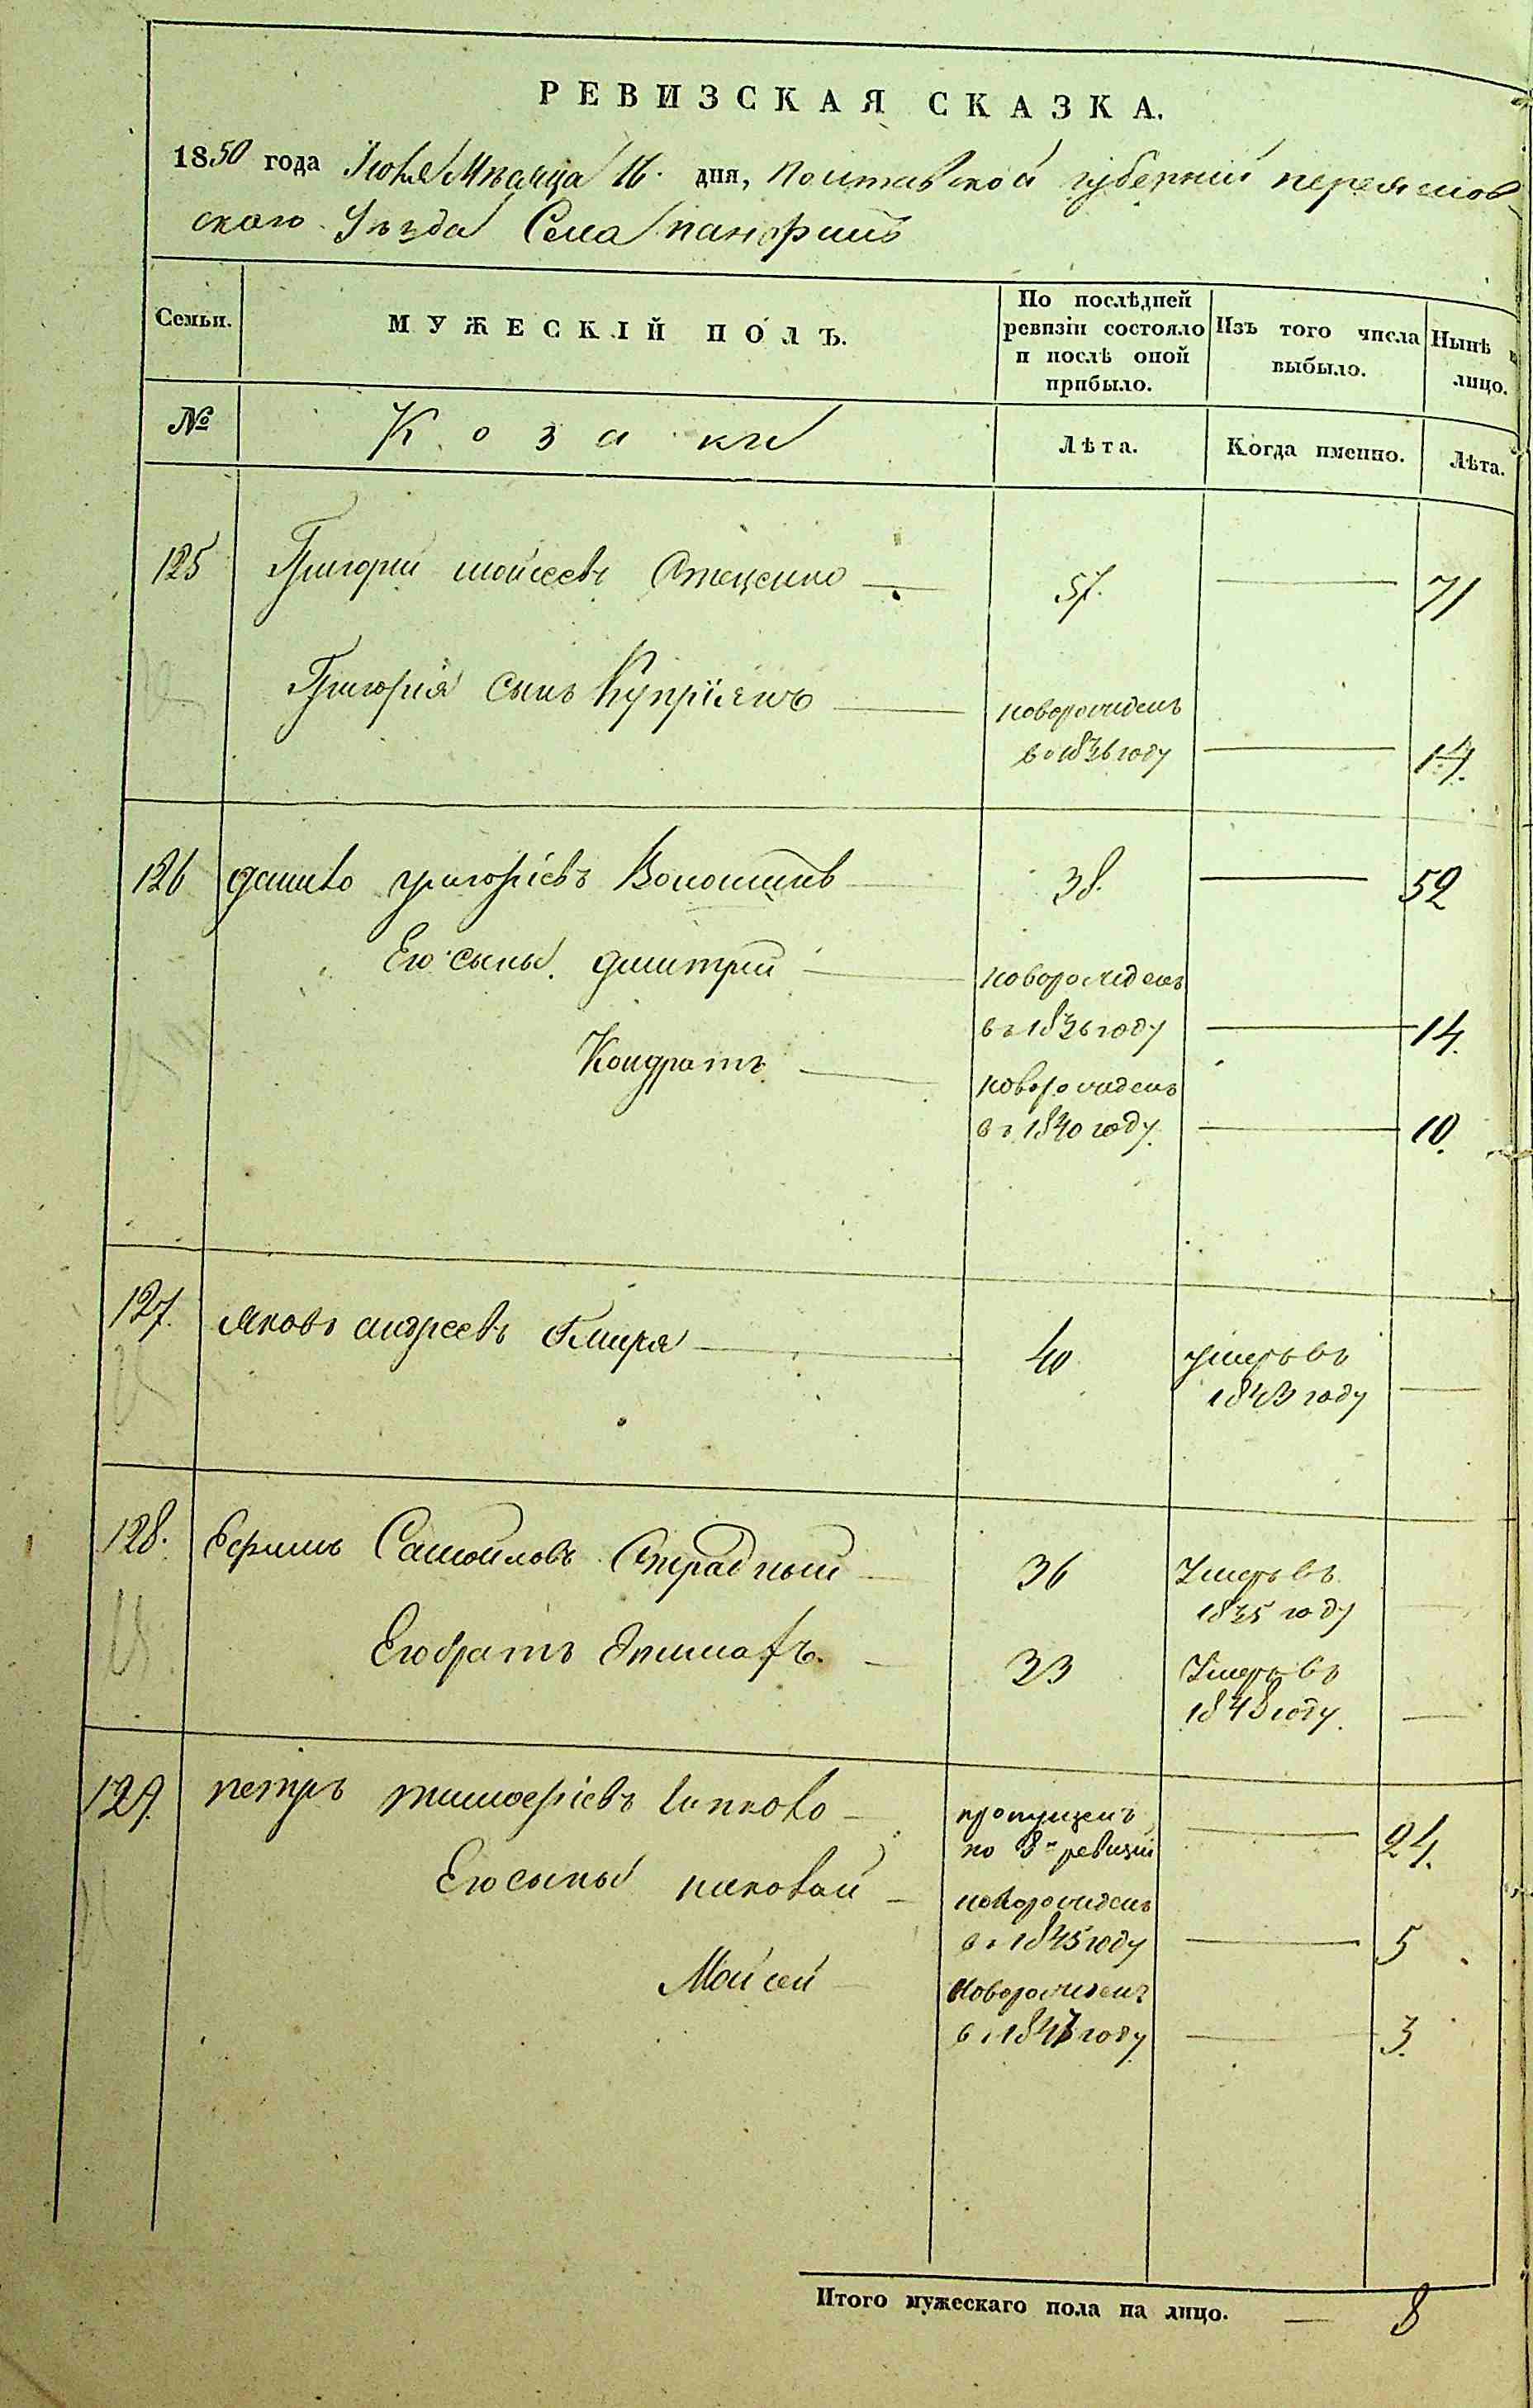 РЕВИЗСКАЯ СКАЗКА.
1850 года Июня Мѣсяца 16. дня, Полтавской губерніи переяслов
скаго Уѣзда Села панфилъ
Семьи.
МУЖЕСКІЙ ПОЛЪ.
По послѣдней ревизіи состояло и послѣ оной прибыло.
Изъ того числа выбыло.
Нынѣ на лицо.
№
Козаки
Лѣта.
Когда именно.
Лѣта.
125 Григорий мойсеевъ Стеценко 57. 71
Григорія сынъ Купріянъ новорожденъ
въ 1836 году 14.
126 данило григоріевъ Волошинъ 38. 52
Его сыны. дмитрий новорожденъ
въ 1836 году 14.
Кондратъ новорожденъ
въ 1840 году. 10.
127. яковъ андреевъ 40 умеръ въ
1843 году
128. Ефимъ Самойловъ Страдный 36 Умеръ въ
1835 году
Его братъ 33 Умеръ въ
1848 году.
129. петръ тимофѣевъ пропущенъ
по 8й ревизіи 24.
Его сыны николай новорожденъ
въ 1845 году 5
Мойсей новорожденъ
въ 1847 году 3.
Итого мужескаго пола на лицо. — 8